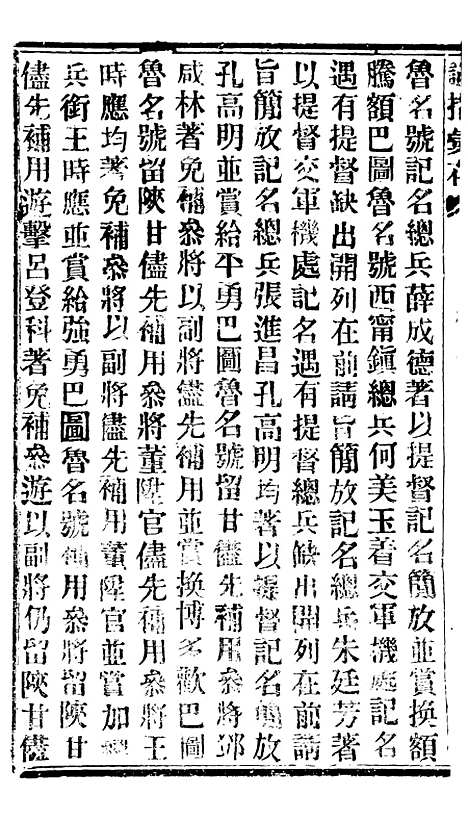 諭摺彙存
魯名號記名總兵薛成德著以提督記名簡放並賞換額
騰額巴圖魯名號西甯鎮總兵何美玉着交軍機處記名
遇有提督缺出開列在前請旨簡放記名總兵朱廷芳著
以提督交軍機處記名遇有提督總兵缺出開列在前請
旨簡放記名總兵張進昌孔高明均著以提督記名簡放
孔高明並賞給平勇巴圖魯名號留甘儘先補用叅將郅
咸林著免補叅將以副將儘先補用並賞換博多歡巴圖
魯名號留陝甘儘先補用叅將董陞官儘先補用叅將王
時應均著免補叅將以副將儘先補用董陞官並賞加總
兵銜王時應並賞給強勇巴圖魯名號補用叅將留陝甘
儘先補用遊擊呂登科著免補叅遊以副將仍留陝甘儘